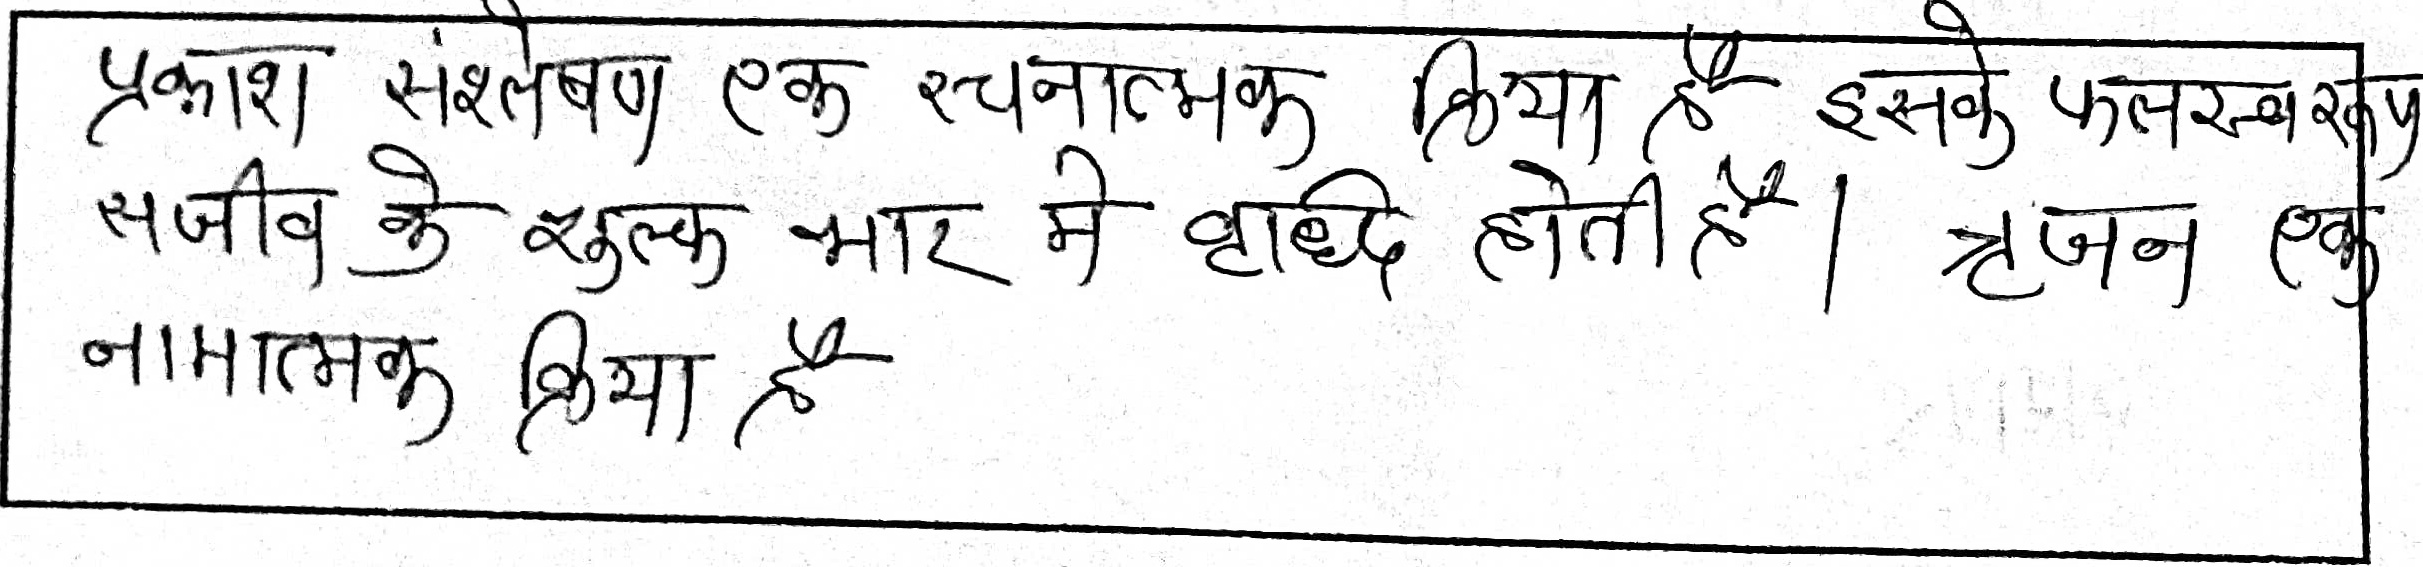 प्रकाश संश्लेषण एक रचनात्मक क्रिया है इसके फलस्वरूप
सजीव के शुल्क भार मे वृद्धि होती है। ऋजन एक
नामात्मक क्रिया है